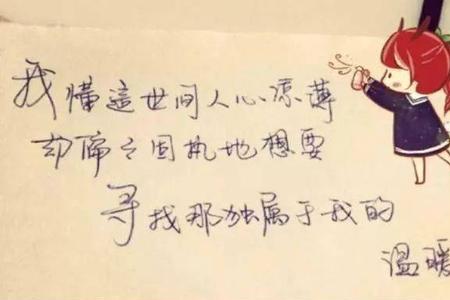 我懂這世间人心凉薄
却偏之固执地想要
寻找那独属于我的
温暖